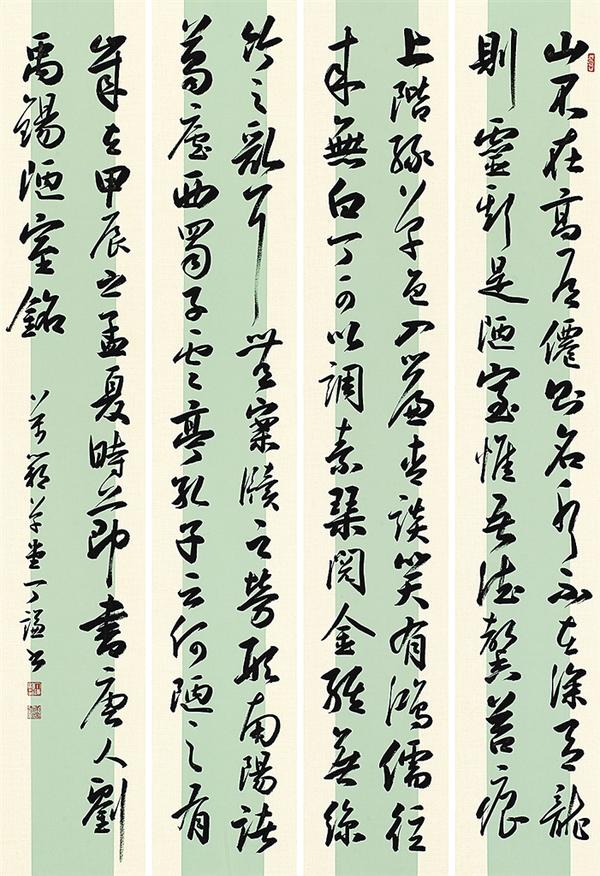 山不在高有僊則名水不在深有龍
則靈斯是陋室惟吾德馨苔痕
上階綠草色入簾青談笑有鴻儒往
來無白丁可以調素琴閱金經無絲
竹之亂耳無案牘之勞形南陽諸
葛廬西蜀子雲亭孔子云何陋之有
歲在甲辰之孟夏時節書唐人劉
禹錫陋室銘
草堂丁謙書